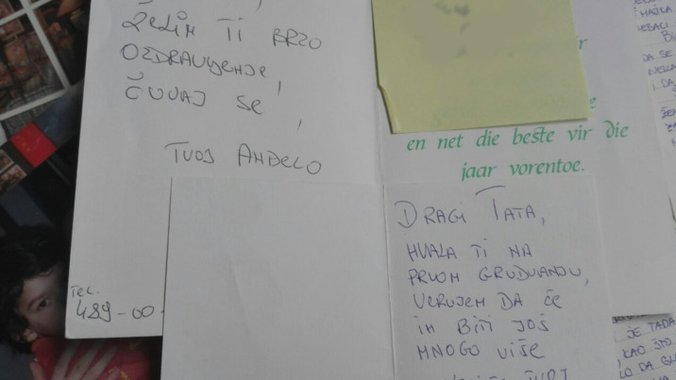 ŽELIM TI BRZO
OZDRAVLJENJE,
ČUVAJ SE,
TVOJ ANĐELO
TEL.
489-00
en net die beste vir die
jaar vorentoe.
DRAGI TATA,
HVALA TI NA
PRVOM GRUDVANJU,
VERUJEM DA ĆE
IH BITI JOŠ
MNOGO VIŠE
I MAJKA
DA SE
I DA
JE TADA
KAO ŠTO
LO DA